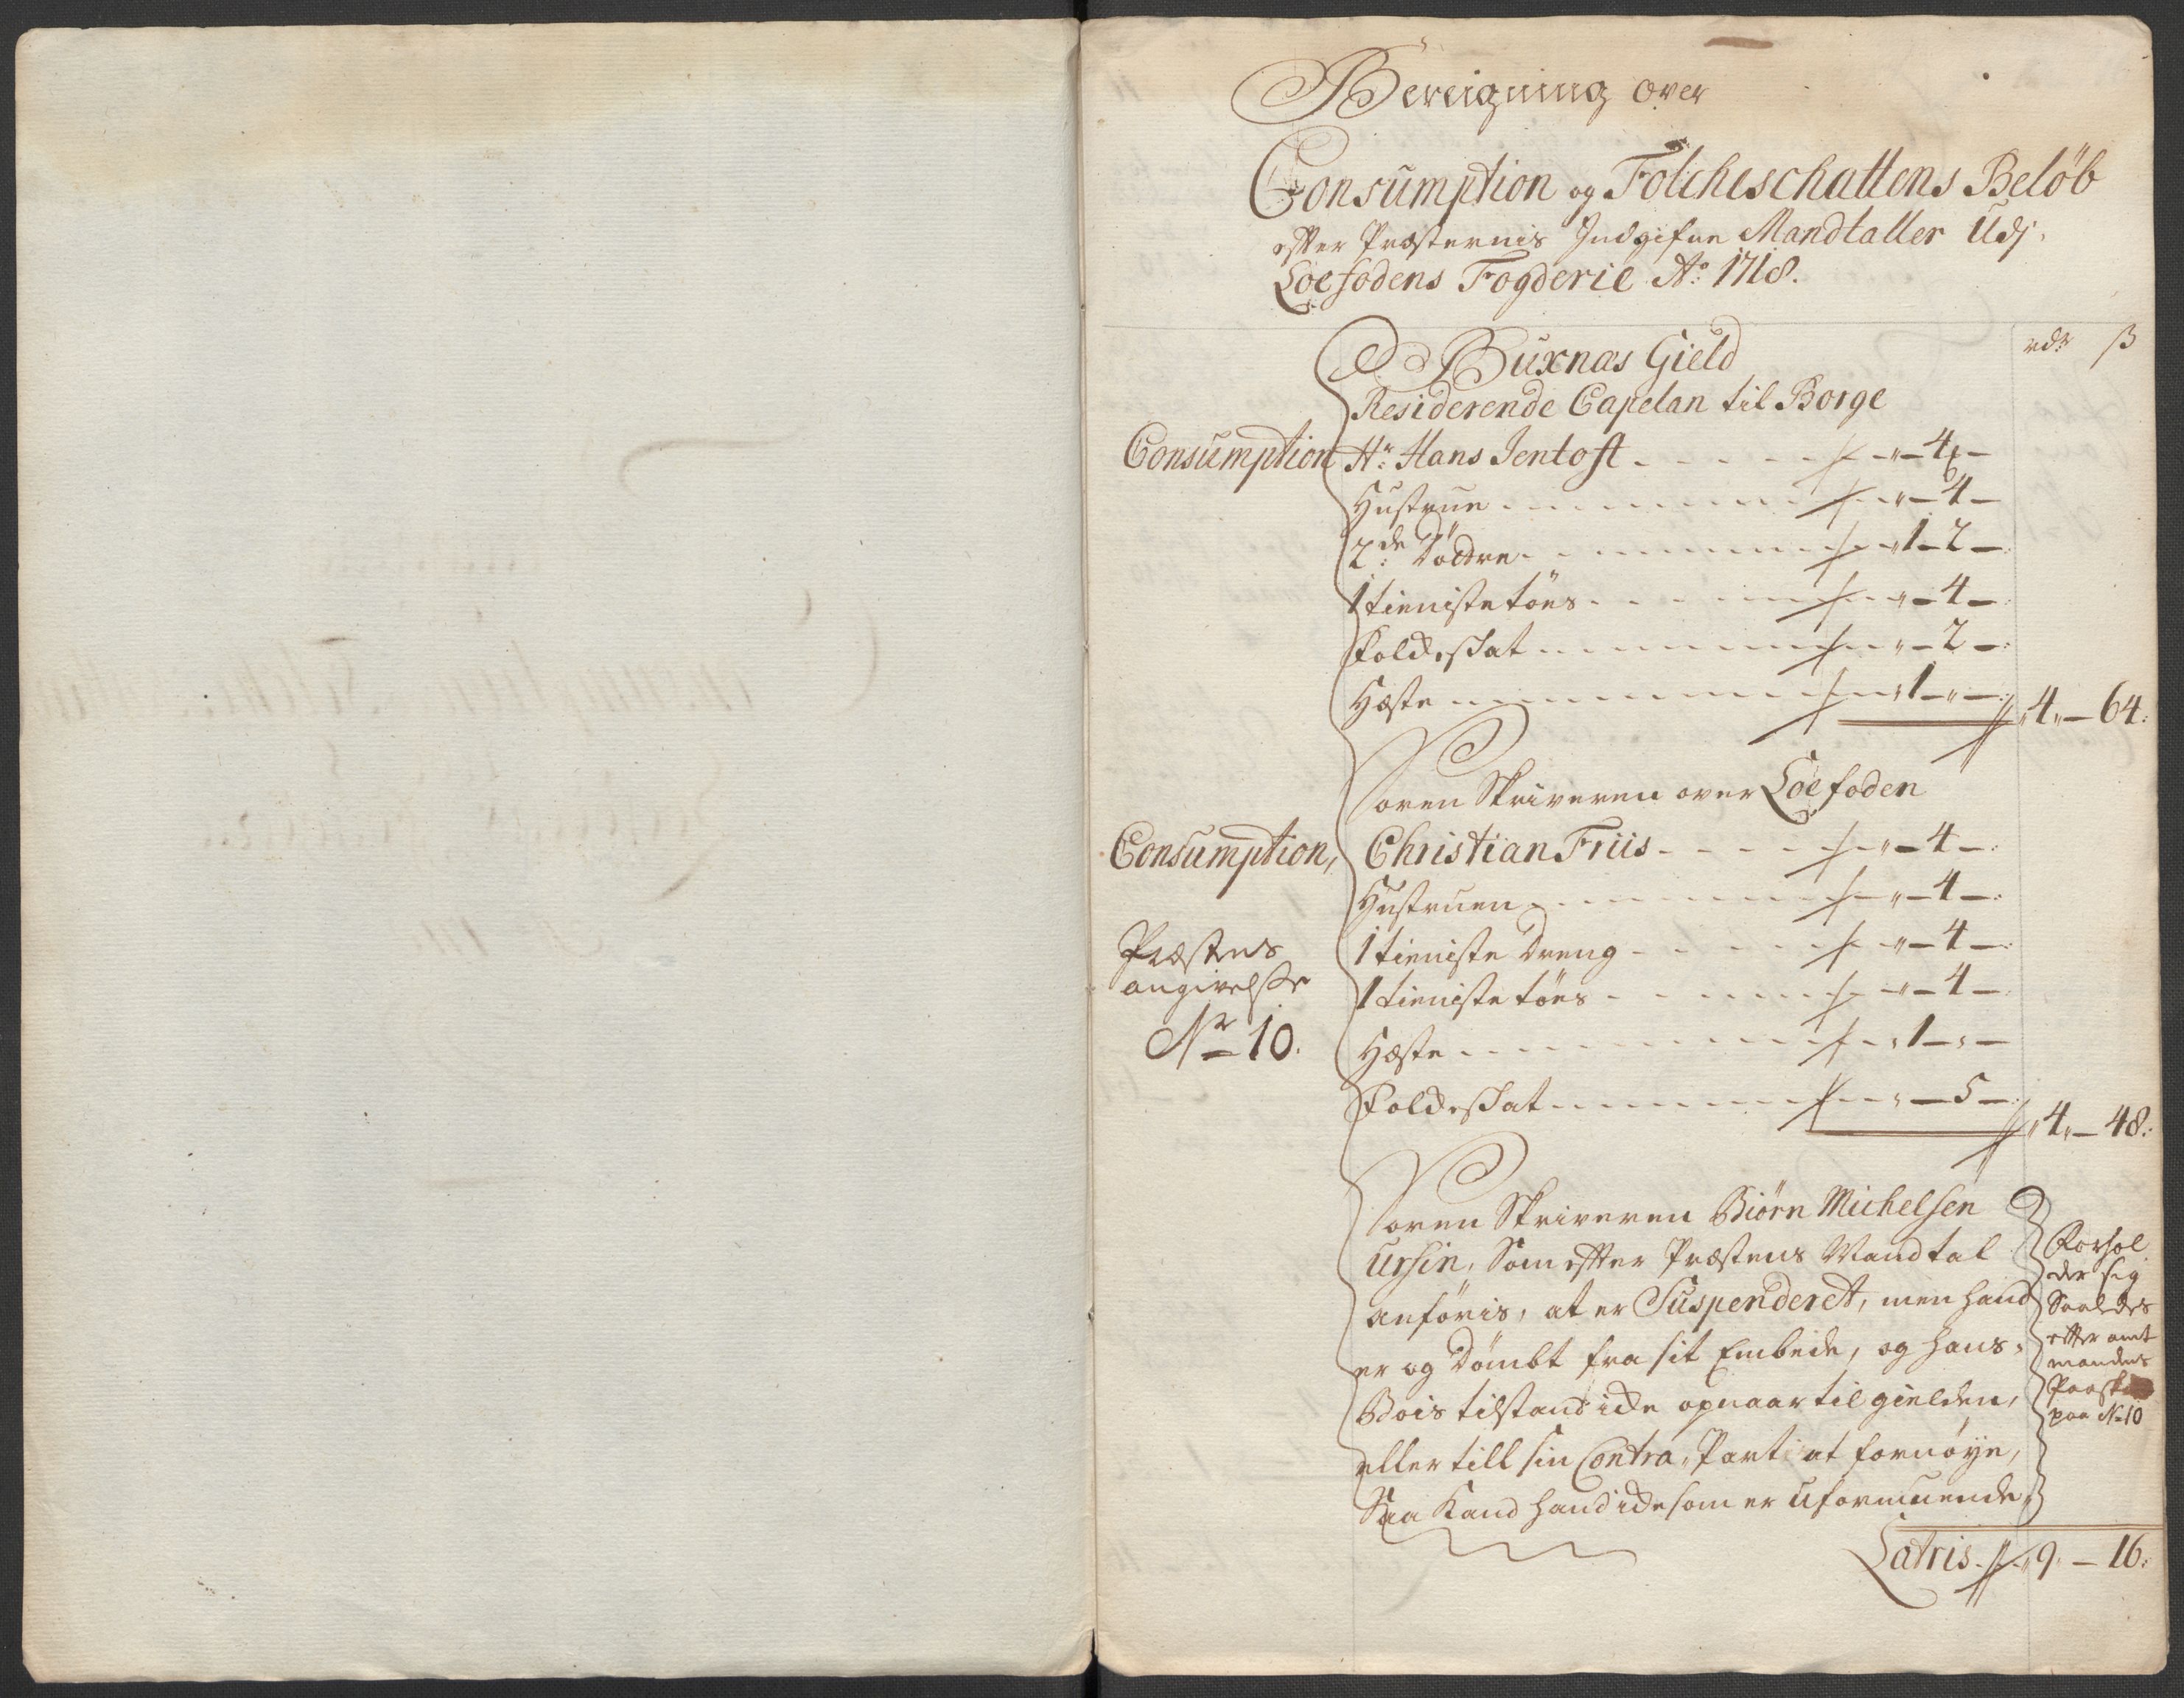 Bereigning over
Consumption og Folcheschattens Beløb
efter Præsternis Indgifne Mandtaller Udj
Loefodens Fogderie Ao: 1718.
rdr ß
Buxnæs Gield
Residerende Capelan til Borge
Consumption Hr: Hans Jentoft - - - " - 4 -
Hustrue - - - " - 4 -
2de: Döttre - - - 1 - 2 -
1 tieniste töes - - - " - 4 -
Folckeskat - - - " - 2 -
Hæste - - - 1 - " - 4 - 64:
Soren Skriveren over Loefoden
Consumption, Christian Friis - - - " - 4 -
Hustruen - - - " - 4 -
Præstens
angivelse
Nr 10.
1 tieniste Dreng - - - " - 4 -
1 tieniste töes - - - " - 4 -
Hæste - - - 1 - " -
Folckeskat - - - " - 5 - 4 - 48:
Soren Skriveren Biörn Michelsen
Ursin, Som efter Præstens Mandtal
anföris, at er Suspenderet, men hand
er og Dömbt fra sit Embede, og hans
Bois tilstand icke opnaar til gielden,
eller till sin Contra, Part at fornöye,
Saa Kand hand icke som er Uformuende
Forhol
der sig
Saaledes
efter amt
mandens
paa No 10
Latris - 9 - 16: